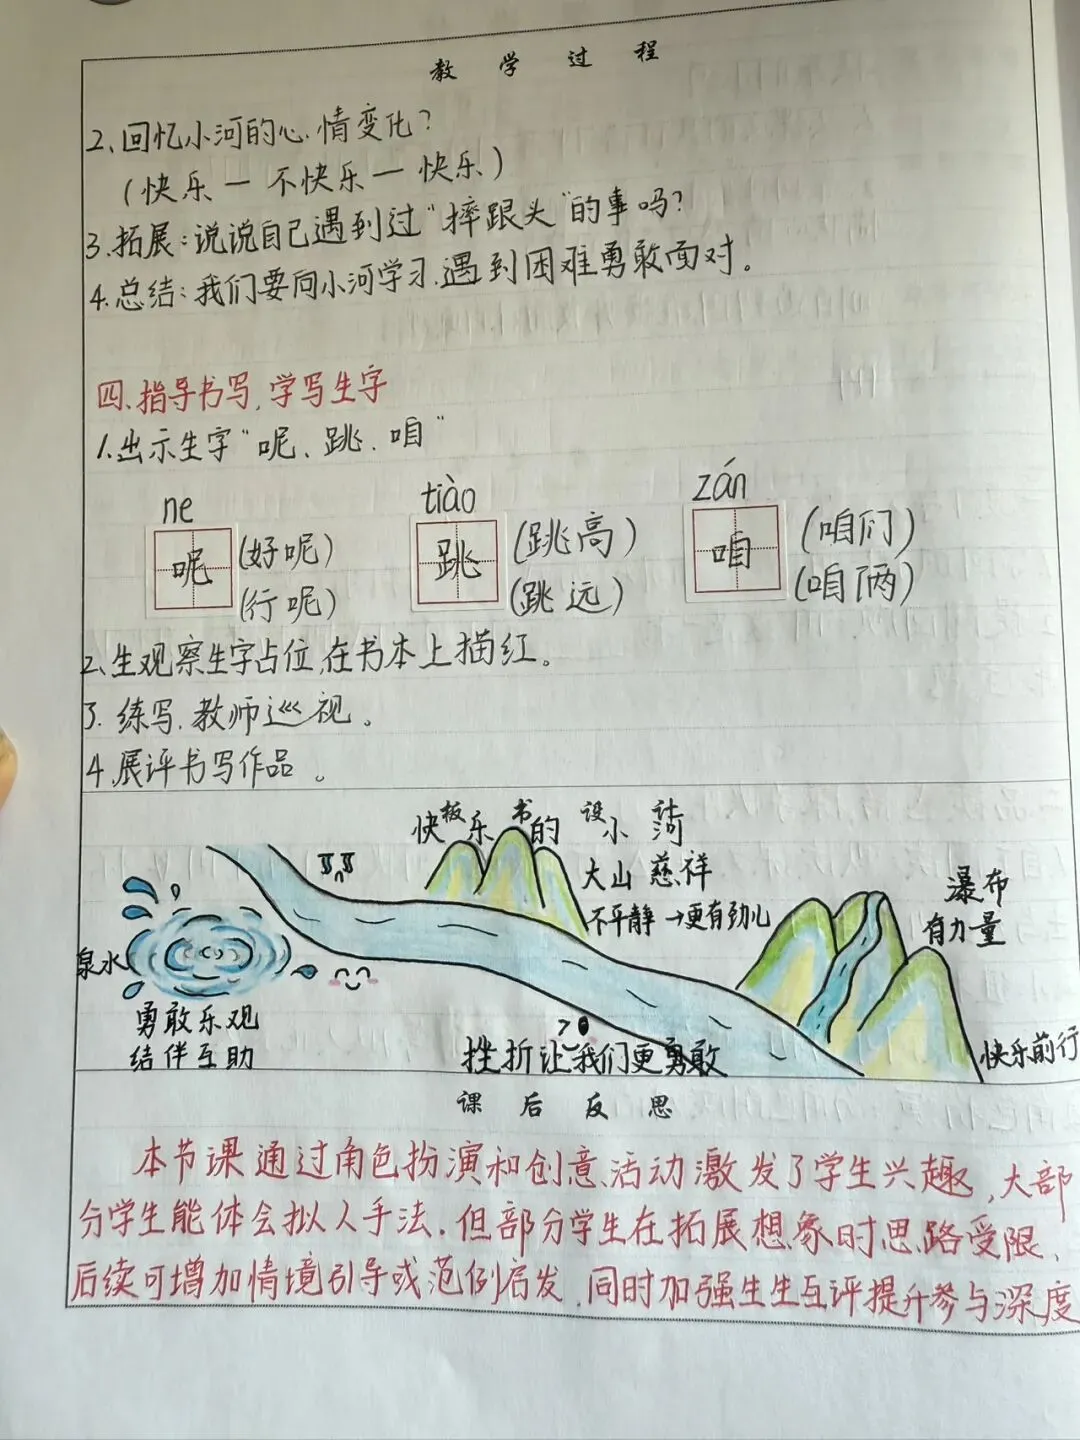 教学过程
2、回忆小河的心情变化？
（快乐一不快乐一快乐）
3.拓展：说说自己遇到过“摔跟头”的事吗？
4.总结：我们要向小河学习.遇到困难勇敢面对。
四、指导书写，学写生字
1.出示生字“呢、跳、咱”
ne tiào zán
呢 (好呢) 跳 (跳高) 咱 (咱们)
(行呢) (跳远) (咱俩)
2、生观察生字占位，在书本上描红。
3. 练写，教师巡视。
4.展评书写作品。
板书设计
快乐的小河
大山 慈祥
不平静→更有劲儿
瀑布
有力量
泉水
勇敢乐观
结伴互助
挫折让我们更勇敢
快乐前行
课后反思
本节课通过角色扮演和创意活动激发了学生兴趣，大部
分学生能体会拟人手法.但部分学生在拓展想象时思路受限，
后续可增加情境引导或范例启发，同时加强生生互评提升参与深度